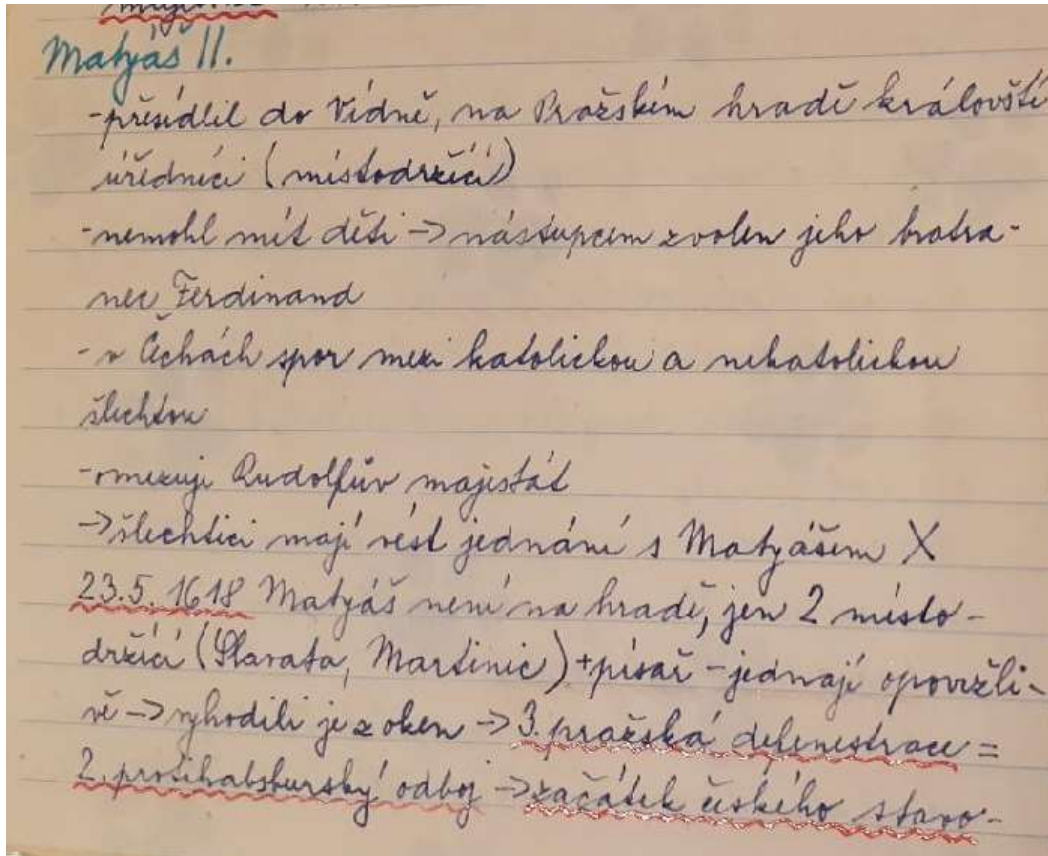 Matyáš II.
-přesídlil do Vídně, na Pražském hradě královští
úředníci (místodržící)
-nemohl mít děti -> nástupcem zvolen jeho bratra-
nec Ferdinand
-v Čechách spor mezi katolickou a nekatolickou
šlechtou
-omezuje Rudolfův majestát
->šlechtici mají vést jednání s Matyášem X
23.5.1618 Matyáš není na hradě, jen 2 místo-
držící (Slavata, Martinic) + písař - jednají opovržli-
vě -> vyhodili je z oken -> 3. pražská defenestrace =
2. protihabsburský odboj -> začátek českého stavo-